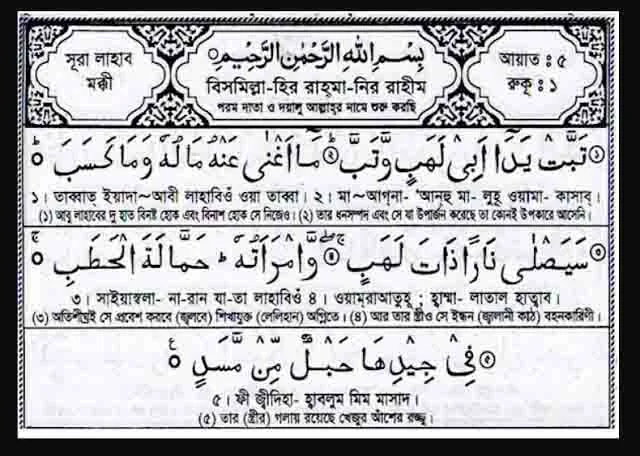 সূরা লাহাব
মক্কী
بِسْمِ اللهِ الرَّحْمٰنِ الرَّحِيْمِ
বিসমিল্লা-হির রাহ্‌মা-নির রাহীম
পরম দাতা ও দয়ালু আল্লাহ্‌র নামে শুরু করছি
আয়াত : ৫
রুকূ : ১
تَبَّتْ يَدَآ اَبِىْ لَهَبٍ وَّتَبَّ ۞ مَآ اَغْنٰى عَنْهُ مَالُهٗ وَمَا كَسَبَ
১। তাব্বাত্‌ ইয়াদা~আবী লাহাবিওঁ ওয়া তাব্বা। ২। মা~আগ্‌না- 'আন্‌হু মা- লুহূ ওয়ামা- কাসাব্‌।
(১) আবু লাহাবের দু হাত বিনষ্ট হোক এবং বিনাশ হোক সে নিজেও। (২) তার ধনসম্পদ এবং সে যা উপার্জন করেছে তা কোনই উপকারে আসেনি।
سَيَصْلٰى نَارًا ذَاتَ لَهَبٍ ۞ وَّامْرَاَتُهٗ ؕ حَمَّالَةَ الْحَطَبِ
৩। সাইয়াছ্‌লা- না-রান যা-তা লাহাবিওঁ ৪। ওয়াম্‌রাআতুহূ ; হাম্মা- লাতাল হাত্বাব।
(৩) অতিশীঘ্রই সে প্রবেশ করবে (জ্বলবে) শিখাযুক্ত (লেলিহান) অগ্নিতে। (৪) আর তার স্ত্রীও সে ইন্ধন (জ্বালানী কাঠ) বহনকারিণী।
فِىْ جِيْدِهَا حَبْلٌ مِّنْ مَّسَدٍ
৫। ফী জ্বীদিহা- হাবলুম মিম মাসাদ।
(৫) তার (স্ত্রীর) গলায় রয়েছে খেজুর আঁশের রজ্জু।